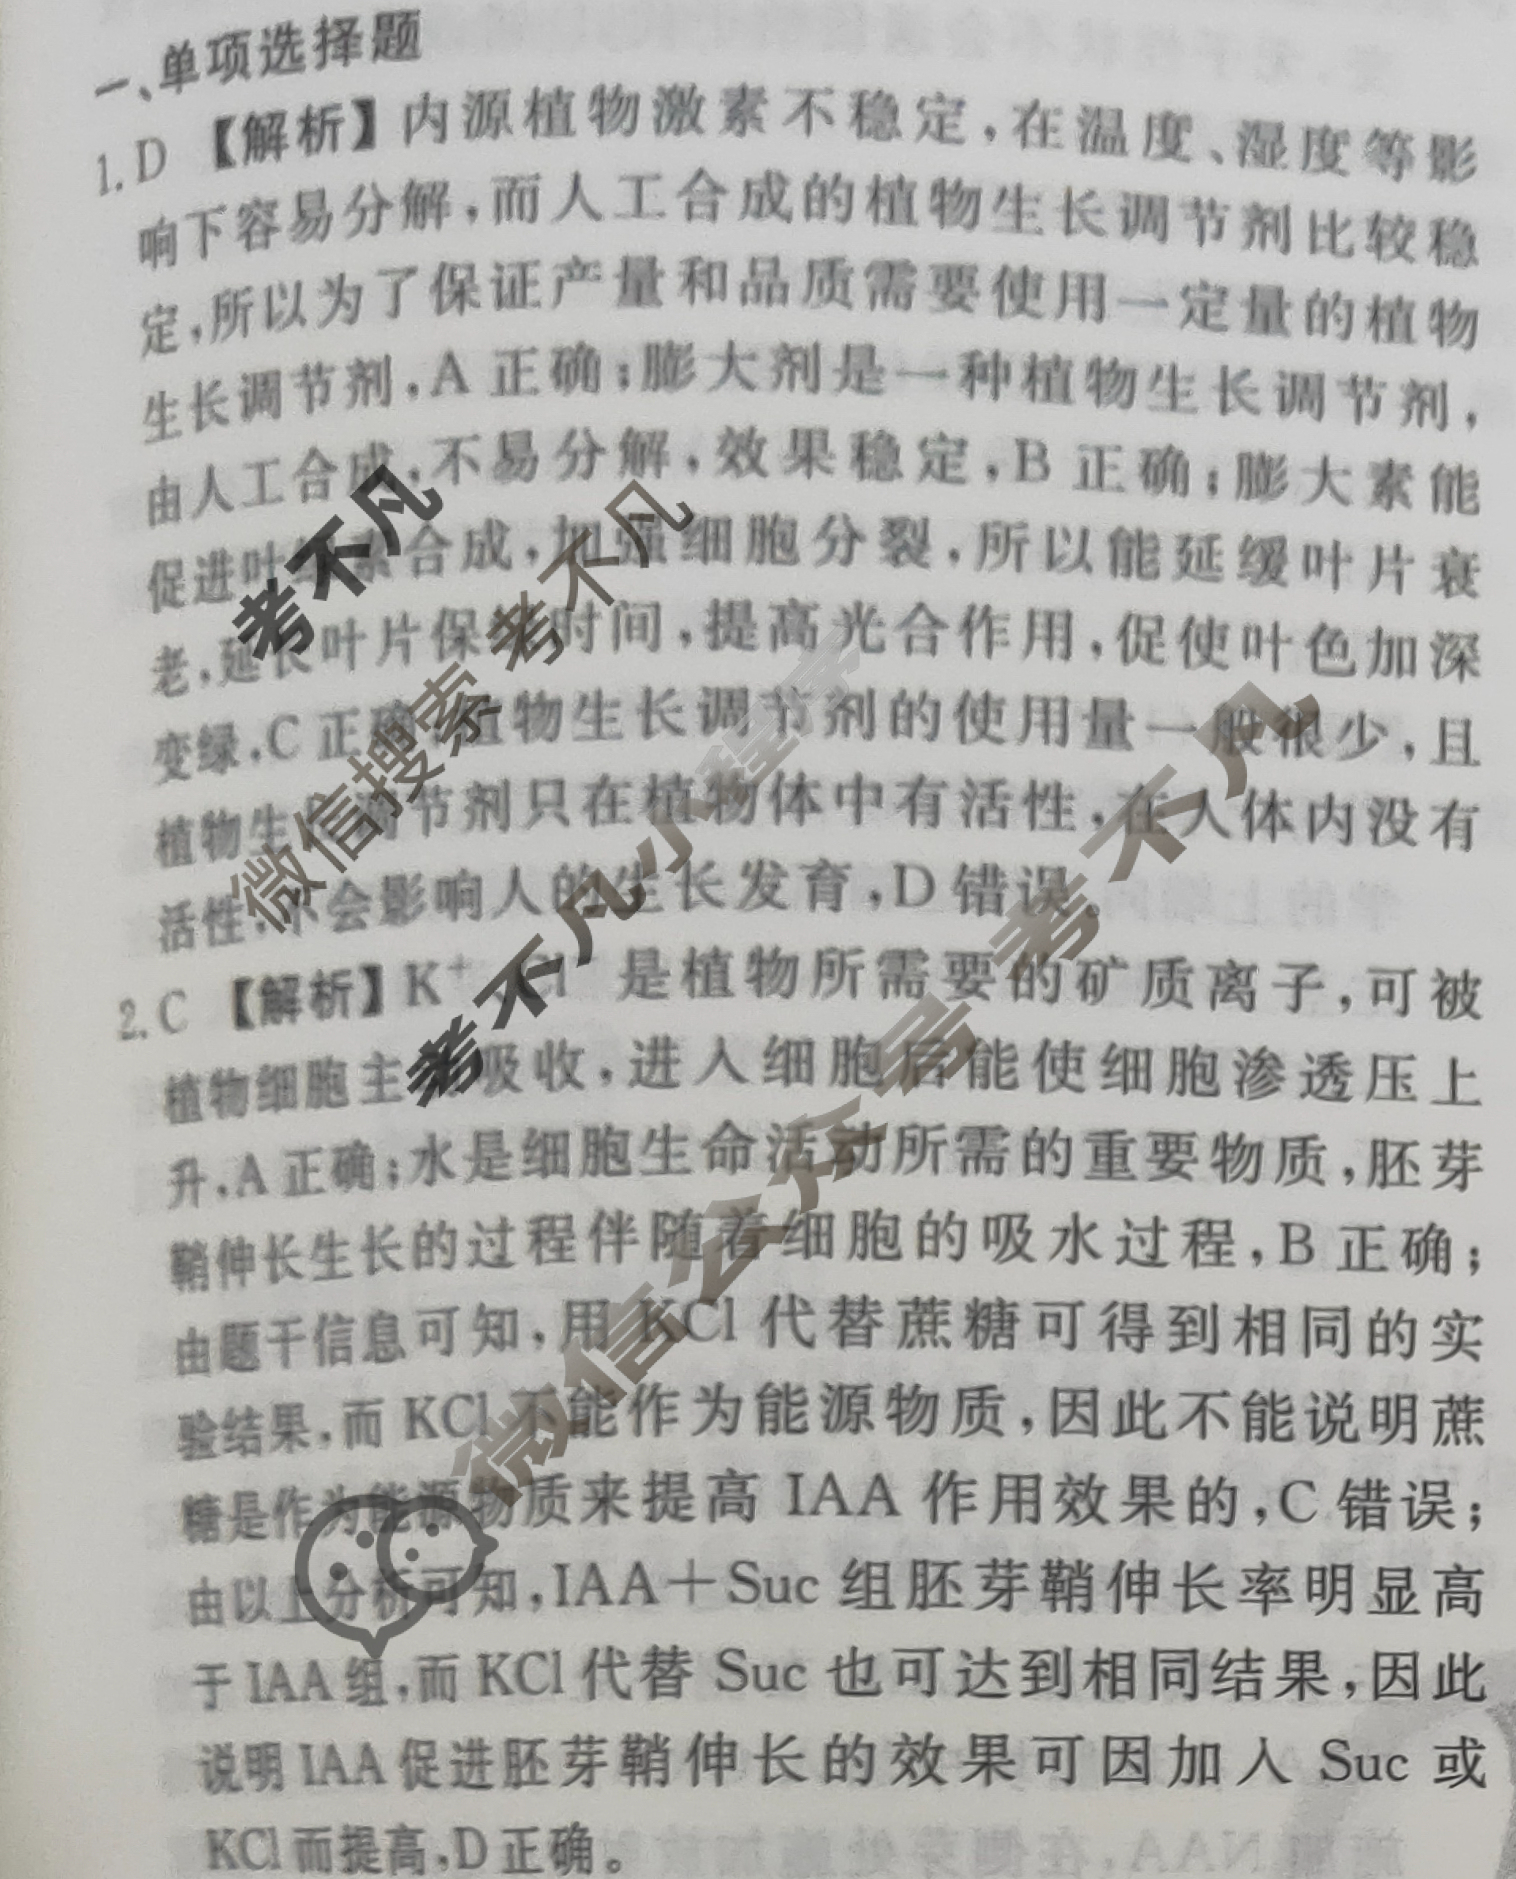 一、单项选择题
1. D 【解析】内源植物激素不稳定,在温度、湿度等影
响下容易分解,而人工合成的植物生长调节剂比较稳
定,所以为了保证产量和品质需要使用一定量的植物
生长调节剂,A 正确;膨大剂是一种植物生长调节剂,
由人工合成,不易分解,效果稳定,B 正确;膨大素能
促进叶绿素合成,加强细胞分裂,所以能延缓叶片衰
老,延长叶片保绿时间,提高光合作用,促使叶色加深
变绿,C 正确;植物生长调节剂的使用量一般很少,且
植物生长调节剂只在植物体中有活性,在人体内没有
活性,不会影响人的生长发育,D 错误。
2. C 【解析】K⁺、Cl⁻ 是植物所需要的矿质离子,可被
植物细胞主动吸收,进入细胞后能使细胞渗透压上
升,A 正确;水是细胞生命活动所需的重要物质,胚芽
鞘伸长生长的过程伴随着细胞的吸水过程,B 正确;
由题干信息可知,用 KCl 代替蔗糖可得到相同的实
验结果,而 KCl 不能作为能源物质,因此不能说明蔗
糖是作为能源物质来提高 IAA 作用效果的,C 错误;
由以上分析可知,IAA+Suc 组胚芽鞘伸长率明显高
于 IAA 组,而 KCl 代替 Suc 也可达到相同结果,因此
说明 IAA 促进胚芽鞘伸长的效果可因加入 Suc 或
KCl 而提高,D 正确。
考不凡
微信搜索 考不凡
考不凡小程序
微信公众号 考不凡